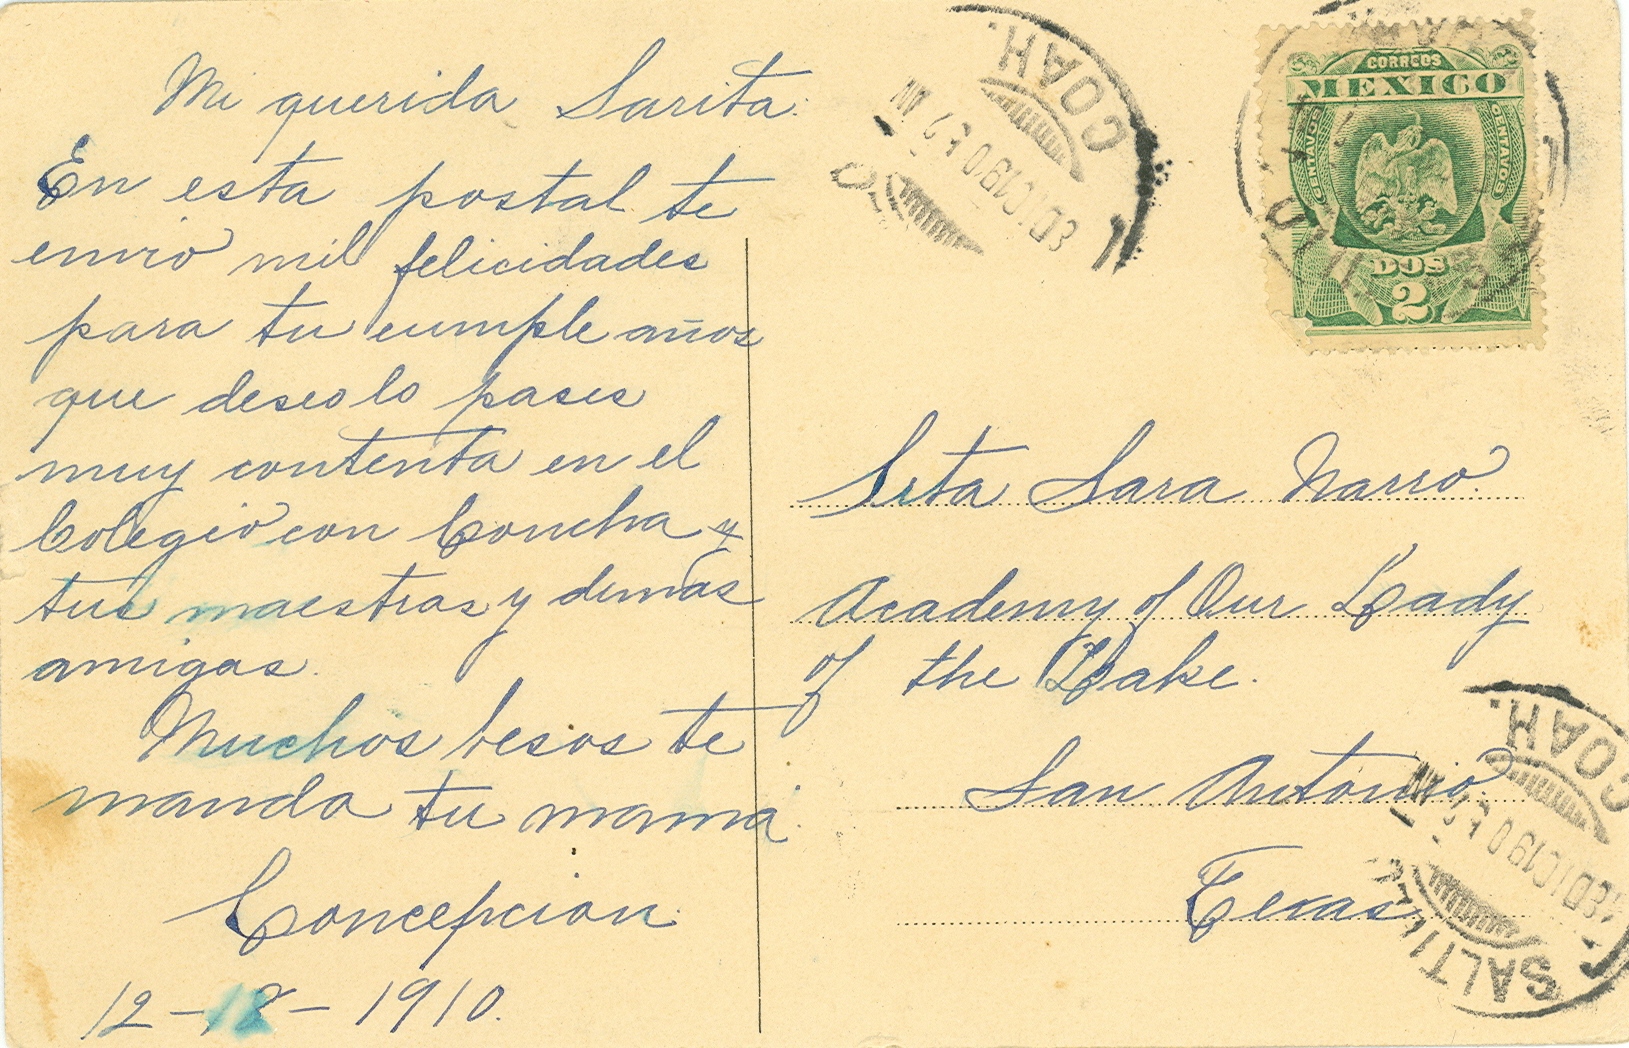 Mi querida Sarita:
En esta postal te
envio mil felicidades
para tu cumple años
que deseo lo pases
muy contenta en el
Colegio con Concha y
tus maestras y demas
amigas.
Muchos besos te
manda tu mamá
Concepcion
12-18-1910.
COAH.
CORREOS
MEXICO
CENTAVOS
CENTAVOS
DOS
2
Srta Sara Narro.
Academy of Our Lady
of the Lake.
San Antonio
Texas
COAH.
SALTILLO